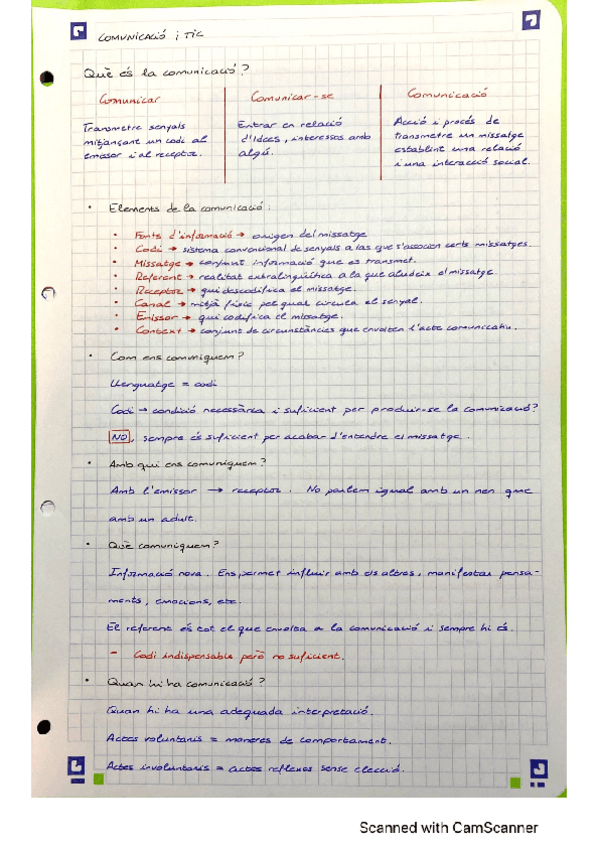 COMUNICACIÓ i TIC
Què és la comunicació?
Comunicar
Transmetre senyals
mitjançant un codi al
emissor i al receptor.
Comunicar-se
Entrar en relació
d'idees, interessos amb
algú.
Comunicació
Acció i procés de
transmetre un missatge
establint una relació
i una interacció social.
• Elements de la comunicació:
• Fonts d'informació → origen del missatge
• Codi → sistema convencional de senyals a las que s'associen certs missatges.
• Missatge → conjunt informació que es transmet.
• Referent → realitat extralingüítica a la que aludeix el missatge
• Receptor → qui descodifica el missatge.
• Canal → mitjà físic pel qual circula el senyal.
• Emissor → qui codifica el missatge.
• Context → conjunt de circumstàncies que envolten l'acte comunicatiu.
• Com ens comuniquem?
Llenguatge = codi
Codi → condició necessària i suficient per produir-se la comunicació?
NO, sempre és suficient per acabar d'entendre el missatge.
• Amb qui ens comuniquem?
Amb l'emissor → receptor. No parlem igual amb un nen que
amb un adult.
• Què comuniquem?
Informació nova. Ens permet influir amb els altres, manifestar pensa-
ments, emocions, etc.
El referent és tot el que envolta a la comunicació i sempre hi és.
- Codi indispensable però no suficient.
• Quan hi ha comunicació?
Quan hi ha una adequada interpretació.
Actes voluntaris = maneres de comportament.
Actes involuntaris = actes reflexes sense elecció.
Scanned with CamScanner